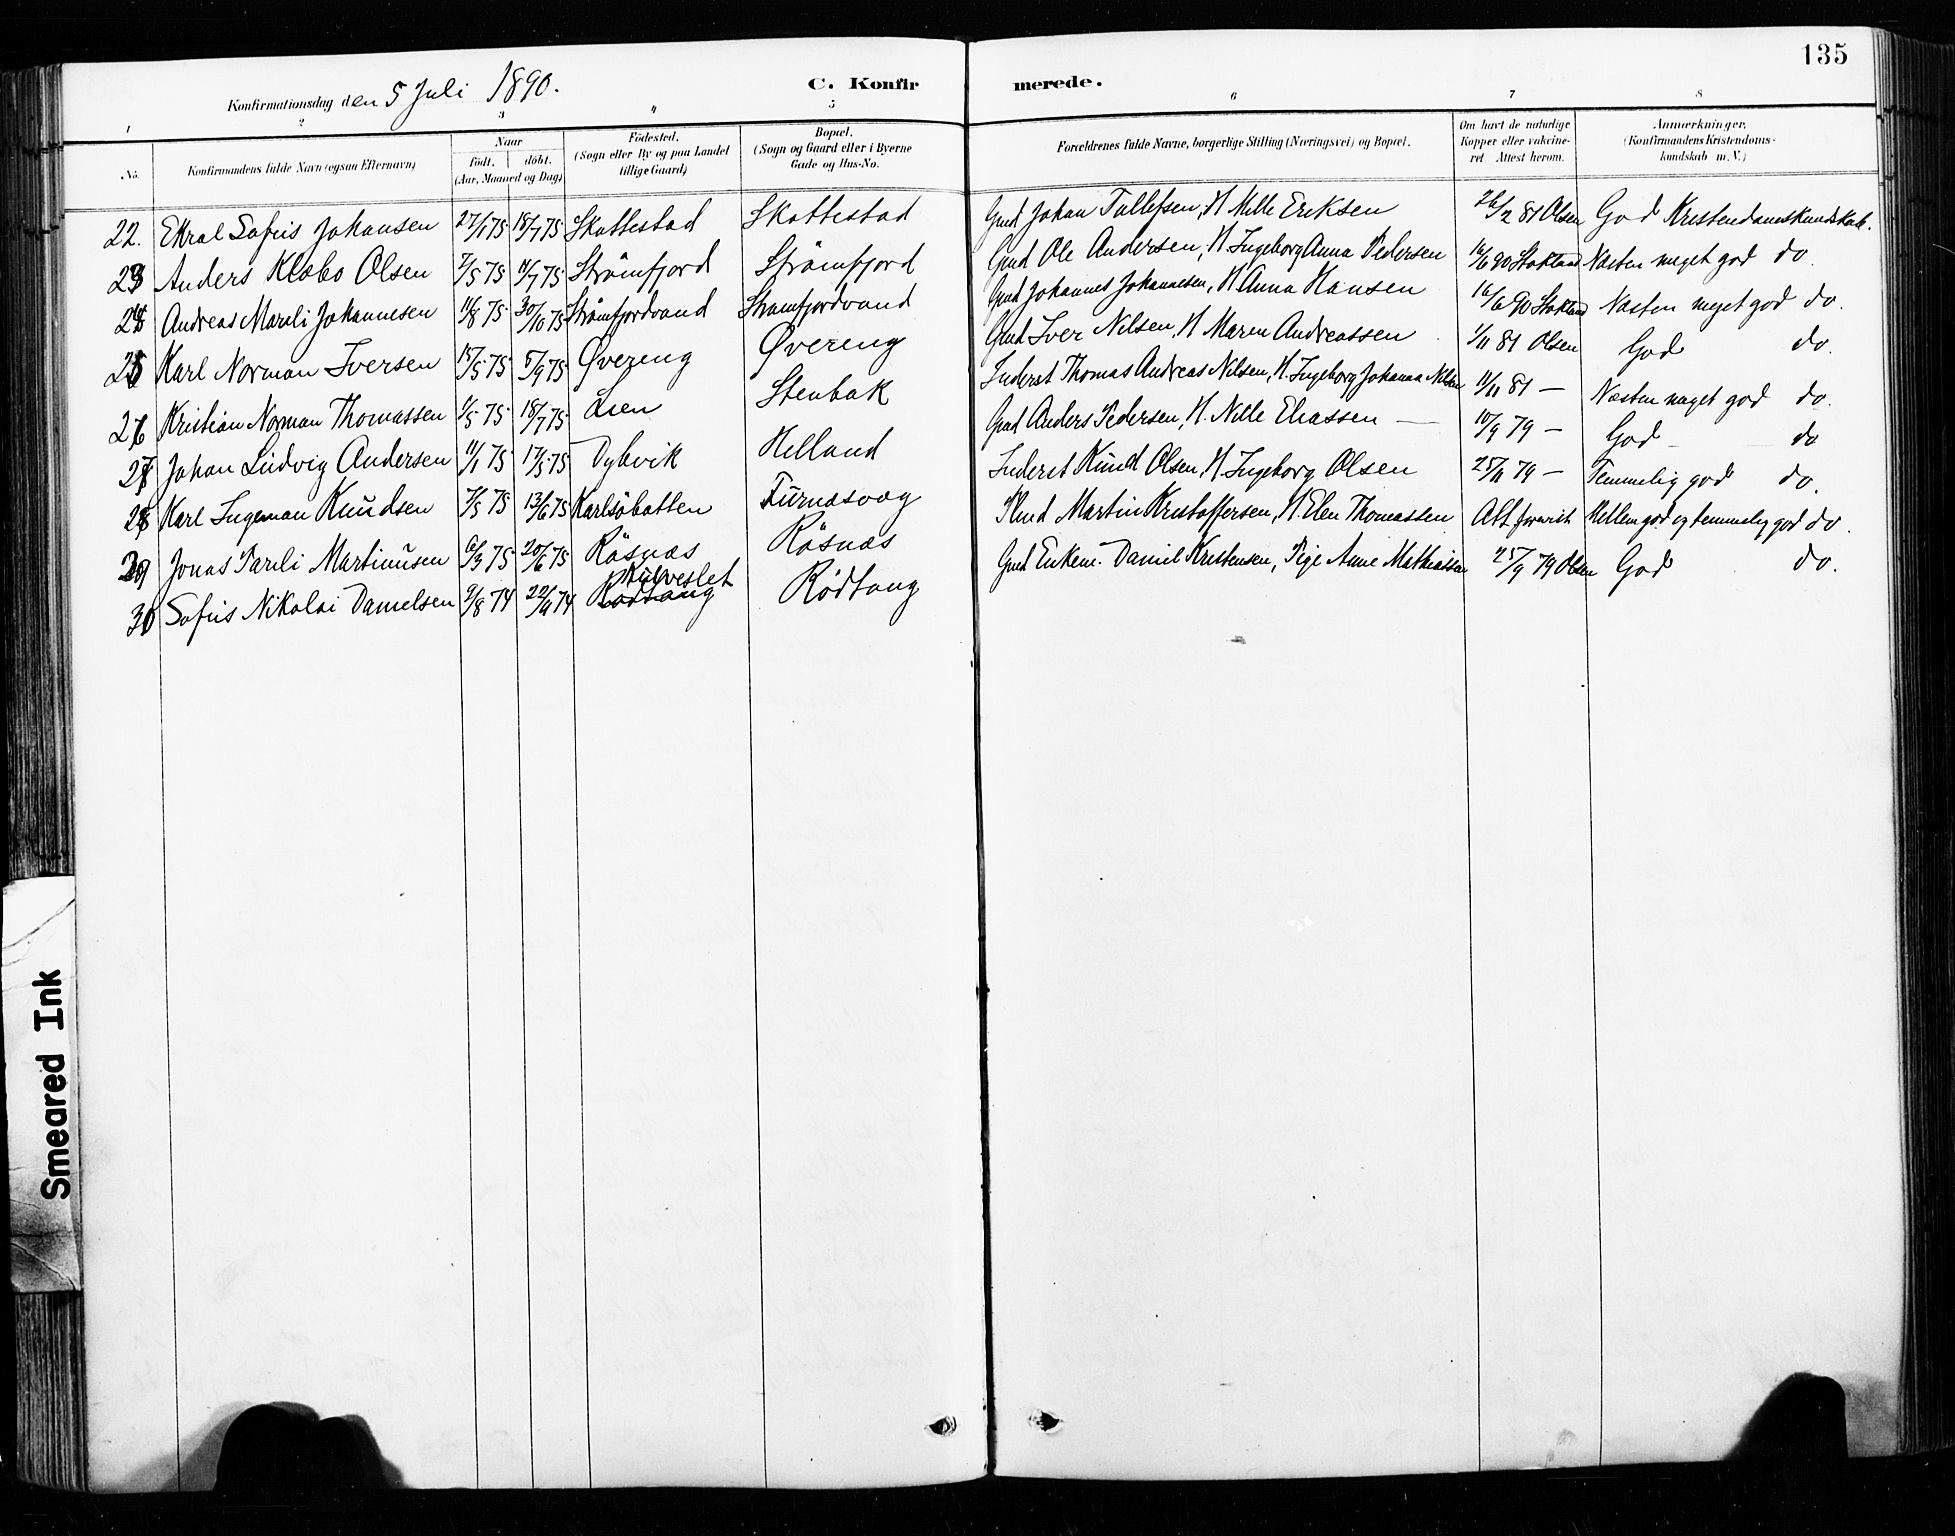 135
Konfirmationsdag den 5 Juli 1890.
C. Konfirmerede.
1 2 3 4 5 6 7 8
No.
Konfirmandens fulde Navn (ogsaa Efternavn)
Naar
födt. döbt.
(Aar, Maaned og Dag)
Födested.
(Sogn eller By og paa Landet tillige Gaard)
Bopæl.
(Sogn og Gaard eller i Byerne Gade og Hus-No.
Forældrenes fulde Navne, borgerlige Stilling (Næringsvei) og Bopæl.
Om havt de naturlige Kopper eller vakcineret. Attest herom.
Anmærkninger.
(Konfirmandens Kristendomskundskab m. V.)
22. Sofus Johansen 27/1 75 18/7 75 Skattestad Skattestad Gmd Johan Tollefsen, H Nille Eriksen 26/2 81 Olsen God Kristendomskundskab.
23 Anders Klæbo Olsen 7/5 75 11/7 75 Strömfjord Strömfjord Gmd Ole Andersen, H Ingeborg Anna Pedersen 16/6 90 Stokland Næsten meget god do.
24 Andreas Marəli Johannesen 11/8 75 30/10 75 Strömfjordvand Strömfjordvand Gmd Johannes Johannesen, H Anna Hansen 16/6 90 Stokland Næsten meget god do.
25 Karl Norman Iversen 15/5 75 5/9 75 Øvereng Øvereng Gmd Iver Nilsen, H Maren Andreassen 1/11 81 Olsen God do.
26 Kristian Norman Thomassen 1/5 75 18/7 75 Lien Stenbak Inderst Thomas Andreas Nilsen, H. Ingeborg Johanna Nilsen 11/11 81 — Næsten meget god do.
27 Johan Ludvig Andersen 11/1 75 17/5 75 Dybvik Helland Gmd Anders Pedersen, H. Nille Eliassen — 10/9 79 — God do
28 Karl Ingeman Knudsen 7/5 75 13/6 75 Karlsöbotten Furnæsvaag Inderst Knud Olsen, H. Ingeborg Olsen 25/11 79 — Temmelig god do.
29 Jonas Parəli Martinusen 6/3 75 20/6 75 Räsnæs Räsnæs Martin Kristoffersen, H. Elen Thomassen Att. forevist Mellem god og temmelig god do.
30 Sofus Nikolai Danielsen 2/8 74 22/11 74 Rödtang Rödtang Gmd Enkem. Daniel Kristensen, Pige Anne Mathiassen 25/9 79 Olsen God do.
Smeared Ink